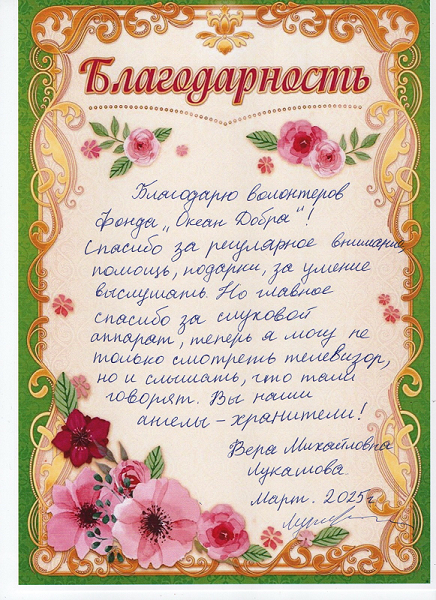 Благодарность
Благодарю волонтеров
Фонда „Океан Добра"!
Спасибо за регулярное внимание,
помощь, подарки, за умение
выслушать. Но главное
спасибо за слуховой
аппарат, теперь я могу не
только смотреть телевизор,
но и слышать, что там
говорят. Вы наши
ангелы – хранители!
Вера Михайловна
Лукашова
Март. 2025г